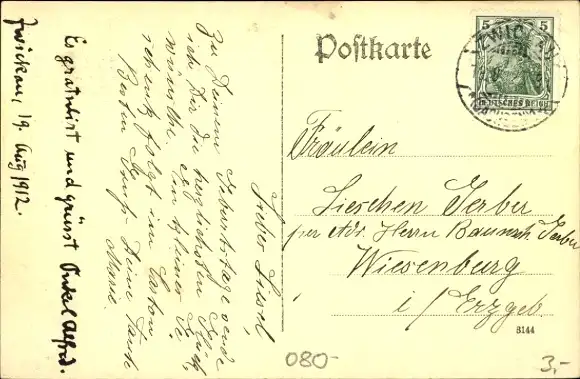 Postkarte
5 5
ZWICKAU
DEUTSCHES REICH
Zwickau, 19. Aug 1912.
Es gratuliert und grüsst Onkel Alfred.
Lieber Liesel
Zu Deinem Geburtstage sende
ich Dir die herzlichsten Glück
wünsche. Ein kleiner Ge
schenk folgt im Carton
Besten Gruß Deine Tante
Marie.
Fräulein
Lieschen Gerber
per Adr. Herrn Baumstr. Gerber
Wiesenburg
i/Erzgeb.
3144
080-
3,-